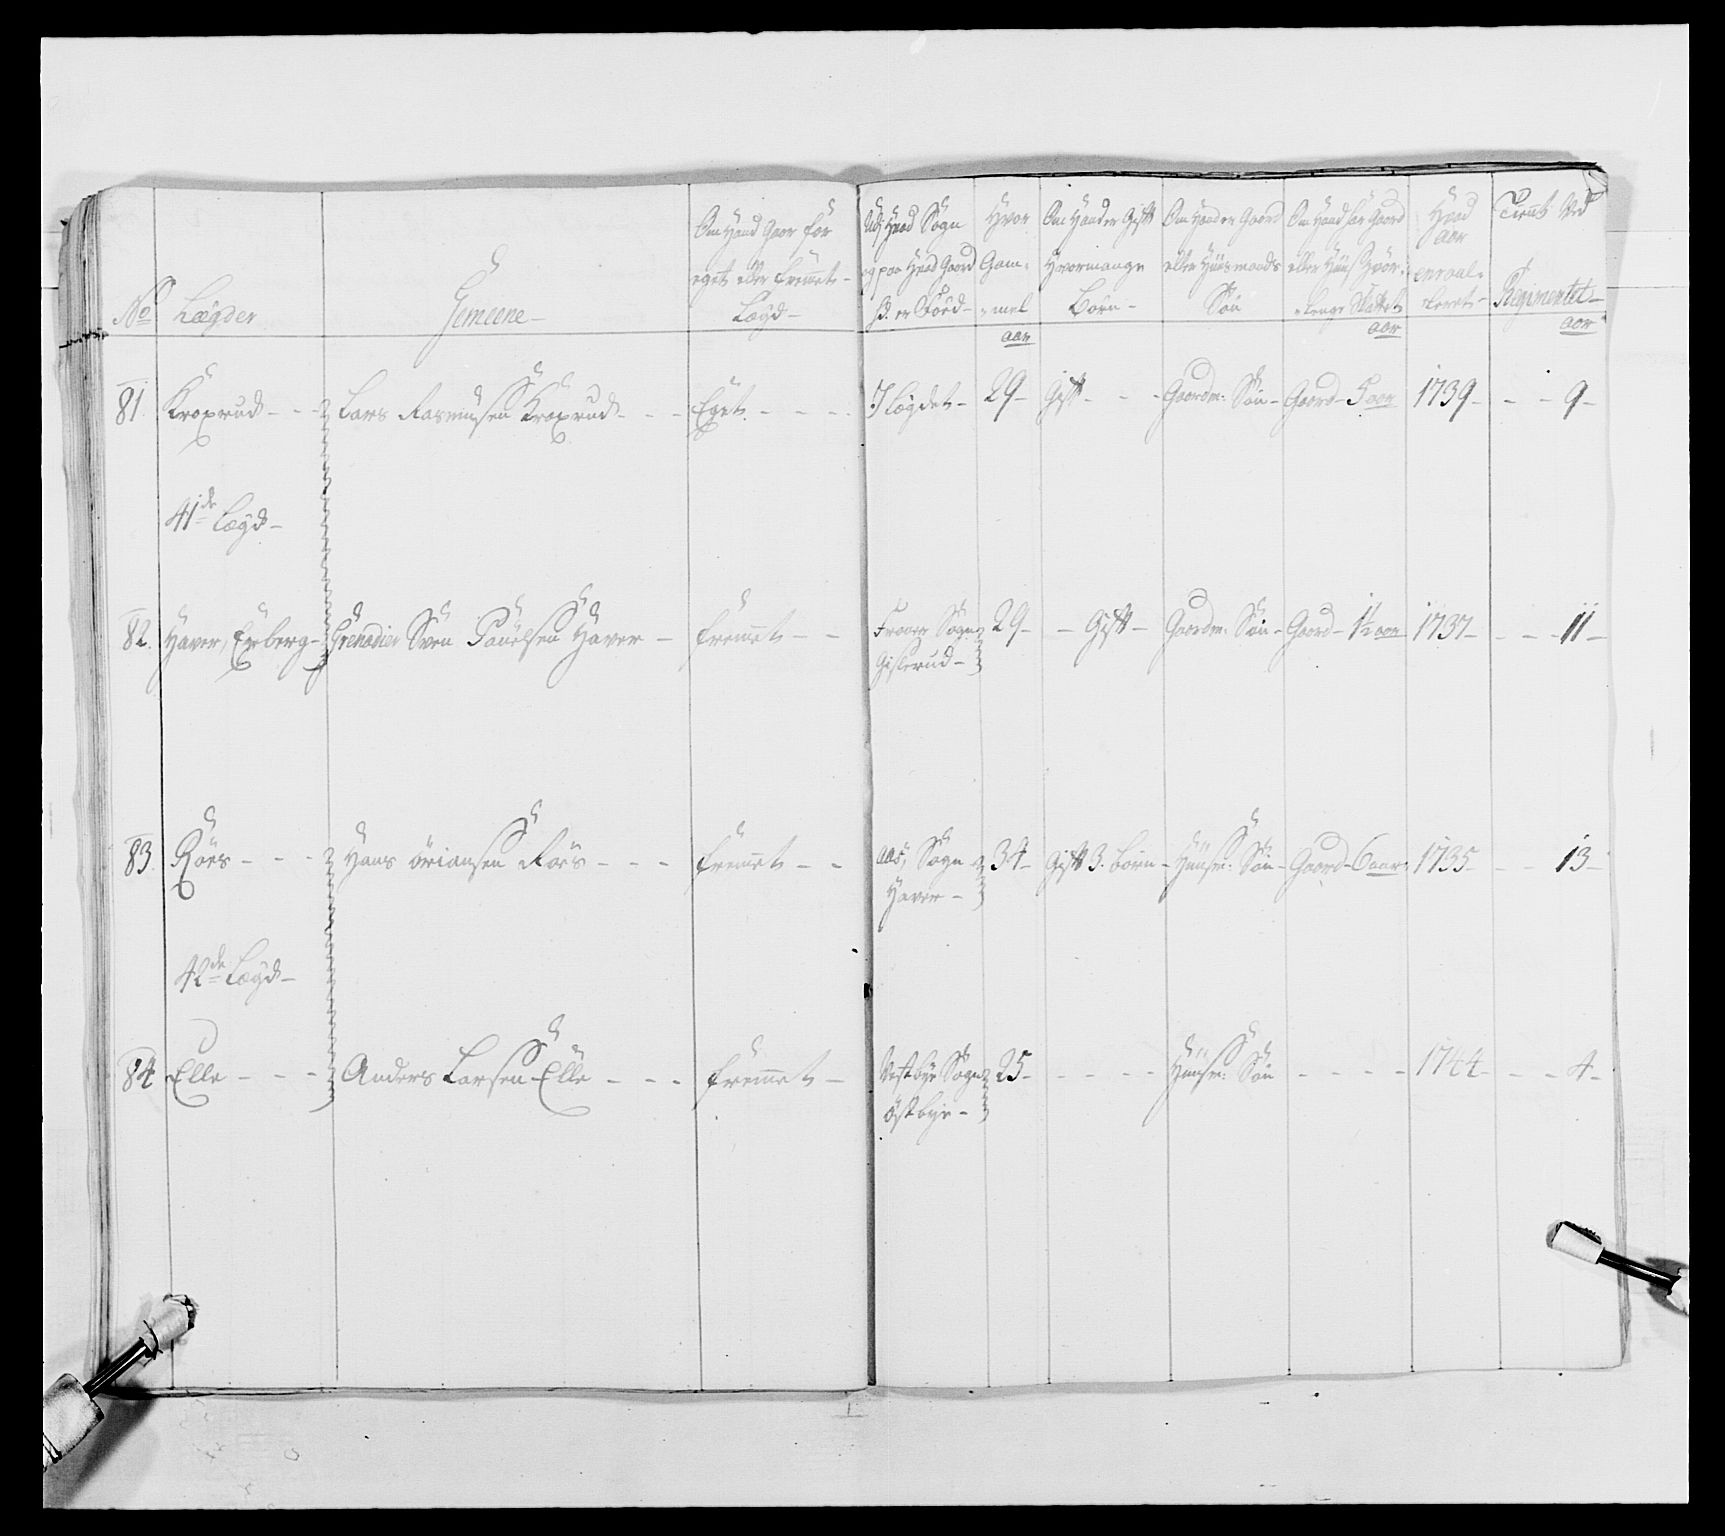 No Lægder Gemeene – Om Hand Gaar for eget eller fremmet – Lægd –
Udj Hvad Sogn og paa Hvad Gaard H: er Föed –
Hvor Gam= =mel aar
Om Hand er Gift Hvormange Börn –
Om Hand er Gaard eller Huusmands Sön
Om Hand har Gaard eller Huus Hvor= =lenge Skattet aar
Hvad aar enroul= =leret –
Tient Ved Regimentet – aar
81. Kroxrud – – – Lars Rasmusen Kroxrud – – – Eget – – – – I Lægdet – 29 – Gift – – – Gaardm: Sön – Gaard – 5 aar 1739 – – – 9 –
41de Lægd –
82. Haver, Exeberg – Grenadier Sven Pouelsen Haver – fremmet – – Fraaen Sogn Gislerud – 29 – – Gift – Gaardm: Sön – Gaard – 1½ aar 1737 – – – – 11 –
83. Röes – – – Hans Öriansen Röes – – – fremmet – – Aas, Sogn Haver – 34 – Gift 3. börn – Huusm: Sön – Gaard – 6 aar 1735 – – – 13 –
42de Lægd –
84 Elle – – – Anders Larsen Elle – – – fremmet – Vestbye Sogn Östbye – 25 – – – – – Huusm: Sön – – – – 1744 – – – 4 –